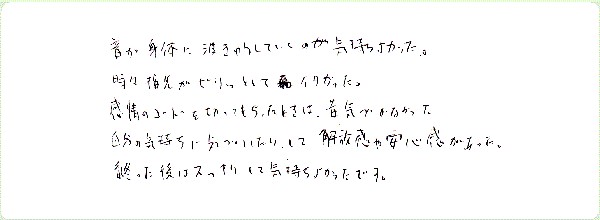 音が身体に浸透していくのが気持ちよかった。
時々指先がビリっとして痛かった。
感情のコードを切ってもらったときは、昔気づかなかった
自分の気持ちに気づいたりして解放感や安心感があった。
終った後はスッキリして気持ちよかったです。